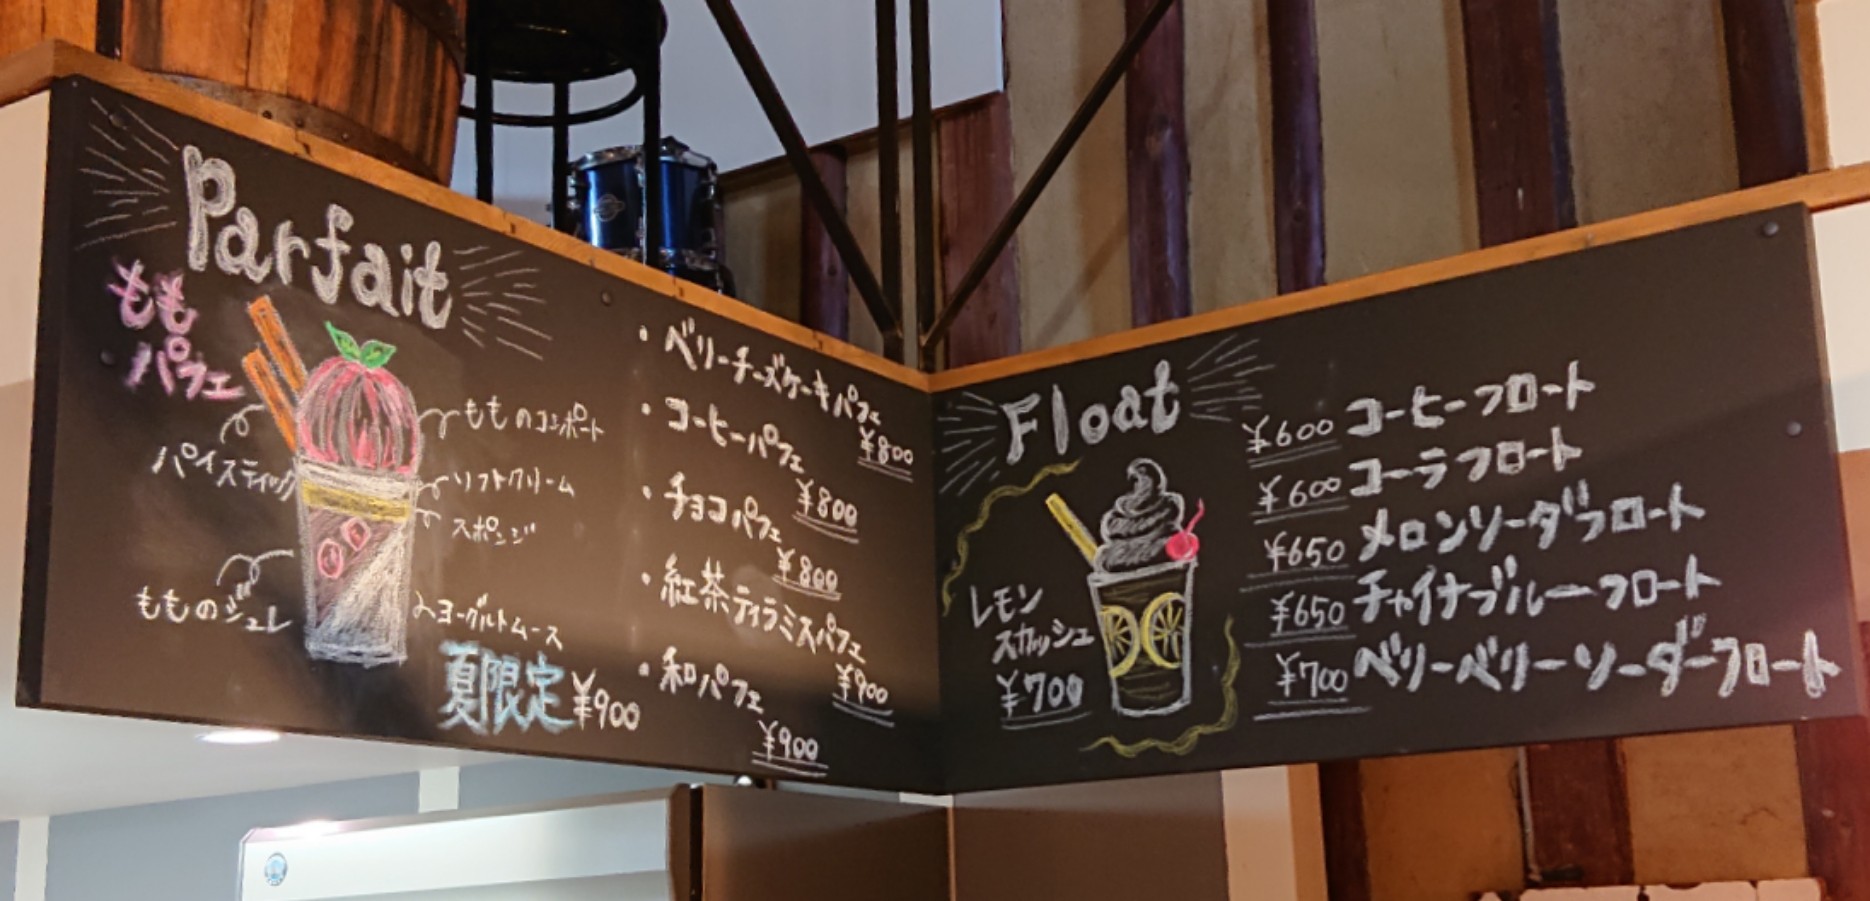 Parfait
もも
パフェ
もものコンポート
パイスティック
ソフトクリーム
スポンジ
もものジュレ
ヨーグルトムース
夏限定 ¥900
・ベリーチーズケーキパフェ
¥800
・コーヒーパフェ
¥800
・チョコパフェ
¥800
・紅茶ティラミスパフェ
¥900
・和パフェ
¥900
Float
レモン
スカッシュ
¥700
¥600 コーヒーフロート
¥600 コーラフロート
¥650 メロンソーダフロート
¥650 チャイナブルーフロート
¥700 ベリーベリーソーダーフロート